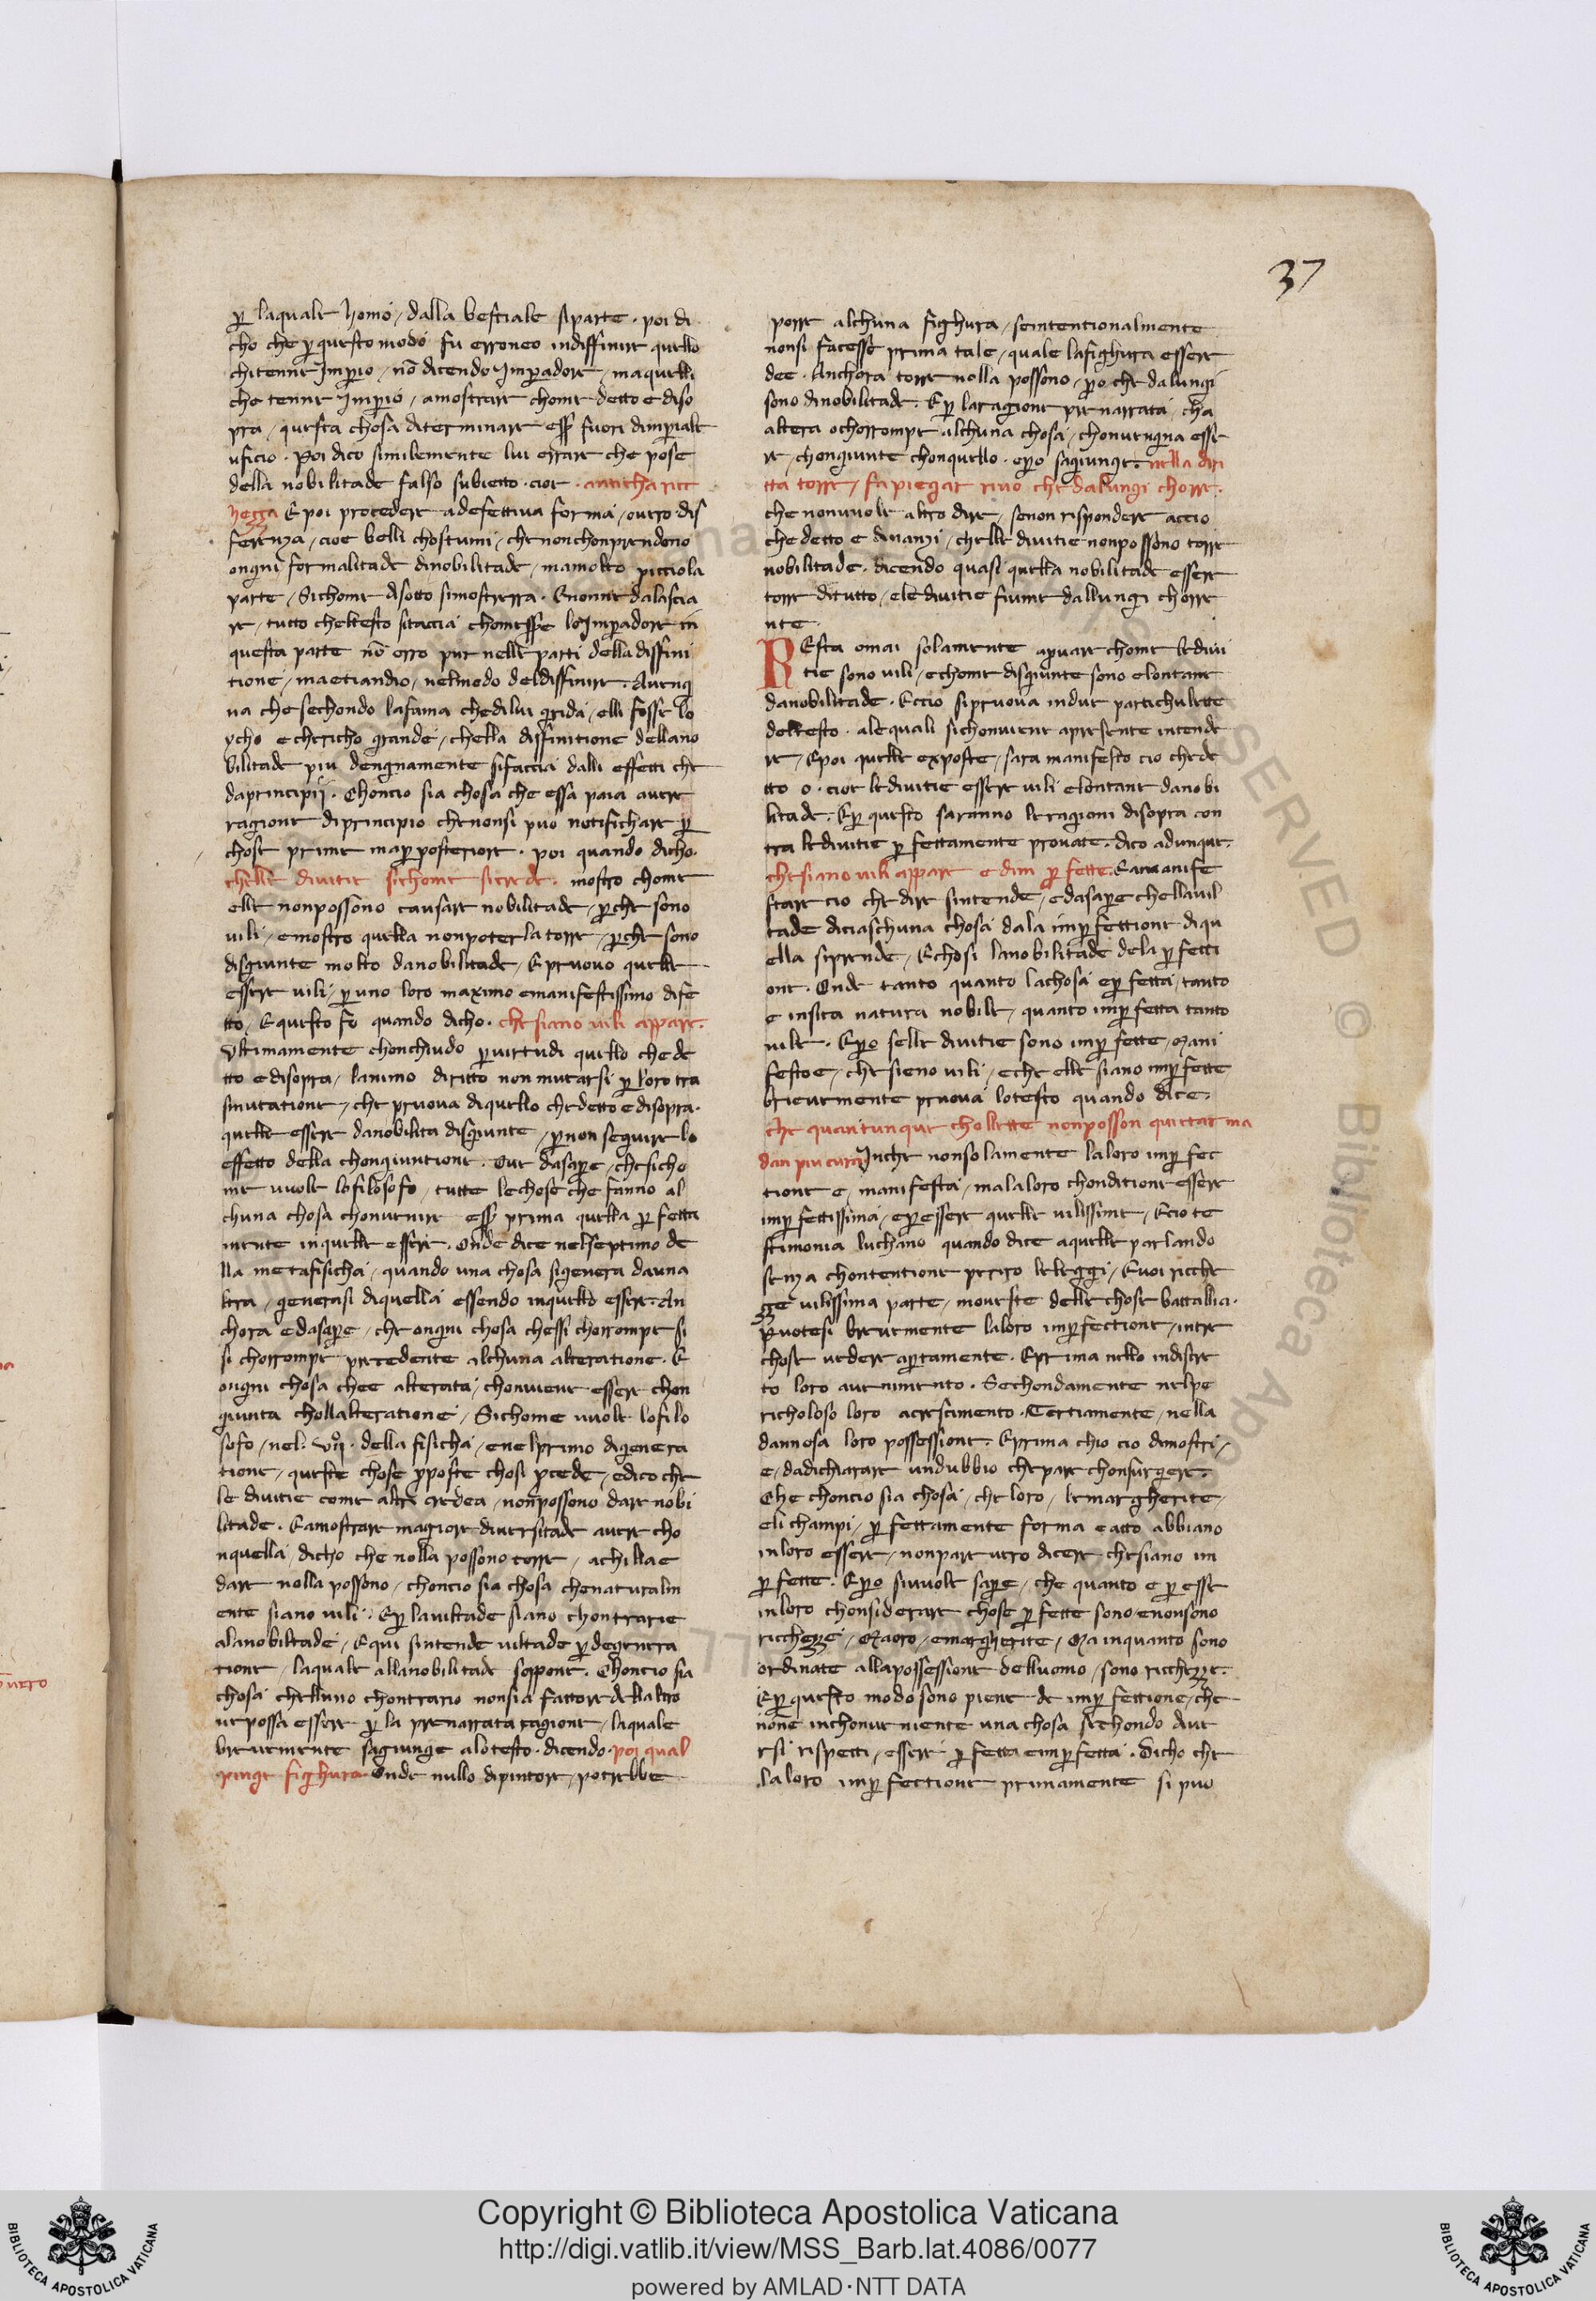 37
ꝑ laquale homo / dalla bestiale siparte . poi di
cho che ꝑ questo modo fu erroneo indiffinire quello
chitenne Imꝑio / nō dicendo Imꝑadore / maquelli
che tenne Imꝑio / amostrare chome detto e diso
pra / questa chosa diterminare essere fuori dimꝑiale
uficio . Poi dico similemente lui errare che pose
della nobilitade falso subietto . cioe . anticha ricc
hezza E poi procedere adefettiva forma / ouero dif
ferenza / cioe belli chostumi / chenonchonprendono
ongni formalitade dinobilitade / mamolto picciola
parte / Sichome disotto simosterra . Enonne dalascia
re / tutto cheltesto sitaccia chomesse loImꝑadore in
questa parte nō erro pur nelle parti della diffini
tione / maetiandio / nelmodo deldiffinire . Avengn
na chesechondo lafama chedilui grida / elli fosse lo
ycho echericho grande / chella diffinitione dellano
bilitade piu dengnamente sifaccia dalli effetti che
daprincipij . Choncio sia chosa che essa paia avere
ragione diprincipio chenonsi puo notifichare ꝑ
chose prime maꝑ posteriore . poi quando dicho .
chelle divitie sichome sicrede . mostro chome
elle nonpossono causare nobilitade / ꝑche sono
uili / emostro quella nonpoterla torre / ꝑche sono
disgiunte molto danobilitade / Epruovo quelle
essere uili / ꝑ uno loro maximo emanifestissimo dife
tto / Equesto fo quando dicho . chesiano uili appare .
Ultimamente chonchiudo ꝑ uirtudi quello che de
tto edisopra / lanimo diritto non mutarsi ꝑ loro tra
smutatione / che pruova diquello chedetto edisopra .
quelle essere danobilita disgiunte / ꝑ non seguire lo
effetto della chongiuntione . Ove dasaꝑe / chesicho
me uuole lofilosofo / tutte lechose che fanno al
chuna chosa chonuenire essere prima quella ꝑfetta
mente inquelle essere . Onde dice nelseptimo de
lla metafisicha / quando una chosa sigenera dauna
ltra / generasi diquella essendo inquello essere . An
chora e dasaꝑe / che ongni chosa chessi chorrompe si
si chorrompe precedente alchuna alteratione . E
ongni chosa chee alterata / chonuiene essere chon
giunta chollalteratione / Sichome uuole lofilo
sofo / nel . vijº . della fisicha / enelprimo digenera
tione / queste chose ꝓposte chosi ꝓcede / edico che
le divitie come altri credea / nonpossono dare nobi
litade . Eamostrare magiore diuersitade avere cho
nquella / dicho che nolla possono torre / achillae
dare nolla possono / choncio sia chosa chenaturalm
ente siano uili . Eꝑ lauiltade siano chontrarie
alanobiltade / Equi sintende uiltade ꝑ degenera
tione / laquale allanobilitade soppone . Choncio sia
chosa chelluno chontrario nonsia fattore dellaltro
nepossa essere ꝑ la prenarrata ragione / laquale
brieuemente sagiunge alotesto . dicendo . poi qual
pinge fighura Onde nullo dipintore / potrebbe
porre alchuna fighura / seintentionalmente
nonsi facesse prima tale / quale lafighura essere
dee . Anchora torre nolla possono / ꝑo che dalungi
sono dinobilitade . Eꝑ laragione prenarrata / cha
altera ochorrompe alchuna chosa / chonuengna esse
re / chongiunte chonquello . eꝑo sagiunge . nella diri
tta torre / fa piegar rivo che dalungi chorre .
che nonuuole altro dire / senon rispondere accio
che detto e dinanzi / chelle divitie nonpossono torre
nobilitade . dicendo quasi quella nobilitade essere
torre ditutto / ele divitie fiume dallungi chorre
nte .
REsta omai solamente apruare chome ledivi
tie sono uili / echome disgiunte sono elontane
danobilitade . Eccio sipruova indue partichulette
deltesto . alequali sichonuiene apresente intende
re / Epoi quelle exposte / sara manifesto cio chede
tto o . cioe ledivitie essere uili elontane danobi
litade . Eꝑ questo saranno leragioni disopra con
tra ledivitie ꝑfettamente provate . dico adunque .
chesiano uili appare e dim ꝑfette . Eamanife
stare cio che dire sintende / edasaꝑe chellauil
tade diciaschuna chosa dala imꝑfettione diqu
ella siprende / Echosi lanobilitade dela ꝑfetti
one . Onde tanto quanto lachosa eꝑfetta / tanto
e insita natura nobile / quanto imꝑfetta tanto
uile . Eꝑo selle divitie sono imꝑfette / mani
festoe / chesieno uili / eche elle siano imꝑfette
brieuemente pruova lotesto quando dice .
che quantunque chollette nonposson quietar ma
dan piu cura Inche nonsolamente laloro imꝑfec
tione e / manifesta / malaloro chonditione essere
imꝑfettissima / eꝑ essere quelle uilissime / Ecio te
stimonia luchano quando dice aquelle parlando
senza chontentione periro leleggi / Euoi ricche
zze uilissima parte / moueste delle chose battallia .
Puotesi brieuemente laloro imꝑfectione / intre
chose vedere aꝑtamente . Eprima nello indiscre
to loro avenimento . Sechondamente nelpe
richoloso loro acrescimento . Tertiamente / nella
dannosa loro possessione . Eprima chio cio dimostri /
e / dadichiarare undubbio chepare chonsurgere .
Che choncio sia chosa / che loro / lemargherite /
eli champi / ꝑfettamente forma e atto abbiano
inloro essere / nonpare uero dicere chesiano im
ꝑfette . Eꝑo siuuole saꝑe / che quanto e ꝑ esse
inloro chonsiderare chose ꝑfette sono / enonsono
ricchezze / Maoro / emargherite / Ma inquanto sono
ordinate allapossessione delluomo / sono ricchezze .
Eꝑ questo modo sono piene de imꝑfettione / che
none inchonueniente una chosa sechondo diue
rsi rispetti / essere ꝑfetta eimꝑfetta . Dicho che
laloro imꝑfectione primamente si puo
Copyright © Biblioteca Apostolica Vaticana
http://digi.vatlib.it/view/MSS_Barb.lat.4086/0077
powered by AMLAD·NTT DATA
BIBLIOTECA APOSTOLICA VATICANA
BIBLIOTECA APOSTOLICA VATICANA